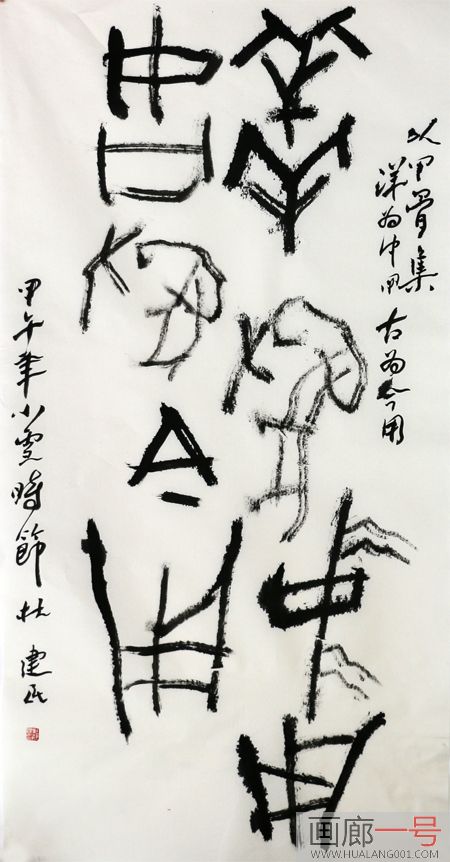 以甲骨集
洋为中用 古为今用
洋為中用
古為今用
甲午年小雪時節 杜建民
画廊一号
WWW.HUALANG001.COM